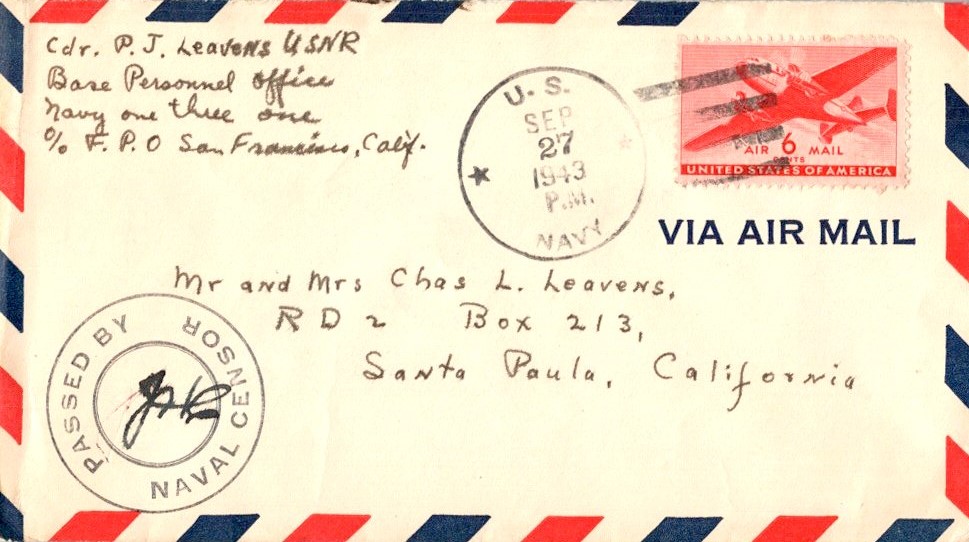 Cdr. P. J. Leavens USNR
Base Personnel office
Navy one three one
c/o F. P. O San Francisco, Calif.
U. S.
SEP
27
1943
P.M.
NAVY
AIR 6 MAIL
CENTS
UNITED STATES OF AMERICA
VIA AIR MAIL
Mr and Mrs Chas L. Leavens,
R D 2 Box 213,
Santa Paula, California
PASSED BY
NAVAL CENSOR